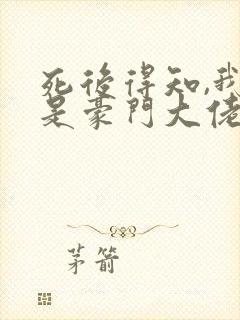 死後得知,我
是豪門大佬
茅箭